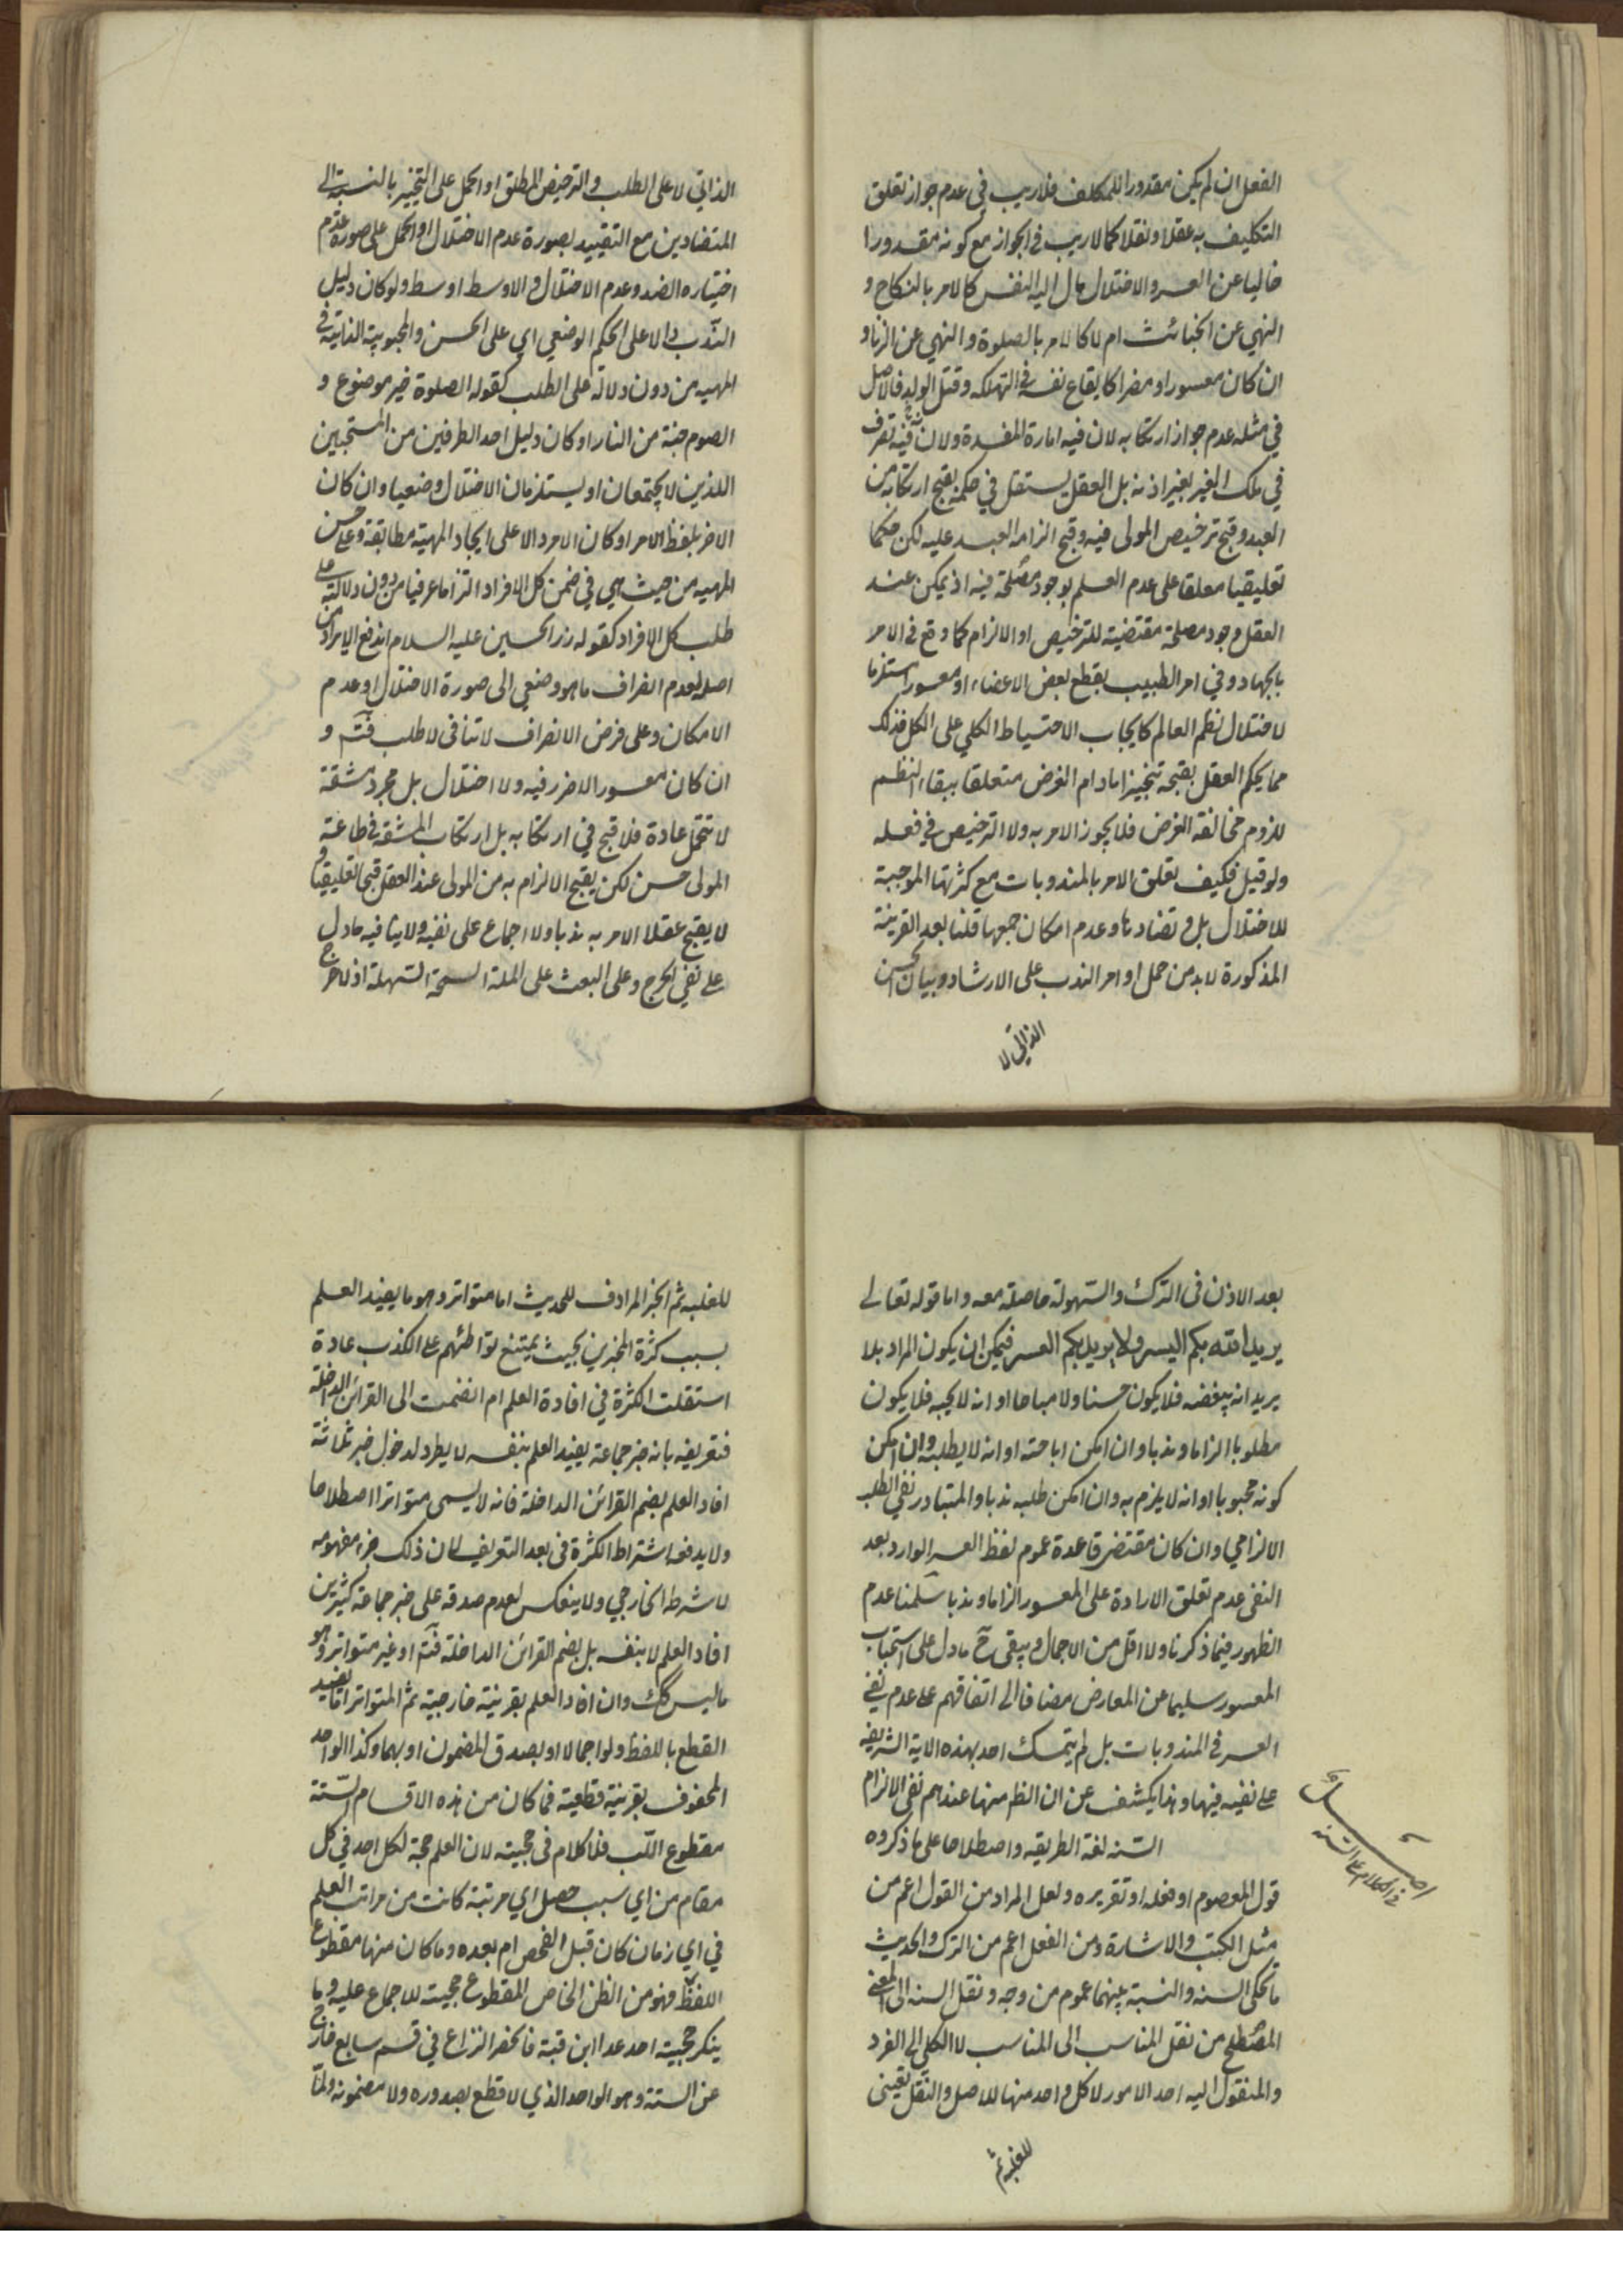 الفعل ان لم يكن مقدورا للمكلف فلا ريب في عدم جواز تعلق
التكليف به عقلا ونقلا كما لا ريب في الجواز مع كونه مقدورا
خاليا عن العسر والاختلال مال اليه النفس كالامر بالنكاح و
النهي عن الخبائث ام لا كالامر بالصلوة والنهي عن الزنا و
ان كان معسورا ومضرا كايقاع نفسه في التهلكه وقتل الولد فالاصل
في مثله عدم جواز ارتكابه لان فيه امارة المفسدة ولان فيه تصرف
في ملك الغير بغير اذنه بل العقل يستقل في حكمه بقبح ارتكابه من
العبد وقبح ترخيص المولى فيه وقبح الزامه العبد عليه لكن حكما
تعليقيا معلقا على عدم العلم بوجود مصلحة فيه اذ يمكن عند
العقل وجود مصلحة مقتضية للترخيص او الالزام كما وقع في الامر
بالجهاد وفي امر الطبيب بقطع بعض الاعضاء او معسورا مستلزما
لاختلال نظم العالم كايجاب الاحتياط الكلي على الكل فذلك
مما يحكم العقل بقبحه تنجيزا مادام الغرض متعلقا ببقاء النظم
للزوم مخالفة الغرض فلا يجوز الامر به ولا الترخيص في فعله
ولو قيل فكيف تعلق الامر بالمندوبات مع كثرتها الموجبة
للاختلال بل وتضادها وعدم امكان جمعها قلنا بعد القرينة
المذكورة لا بد من حمل اوامر الندب على الارشاد وبيان الحسن
الذاتي لا
الذاتي لا على الطلب والترخيص المطلق او الحمل على التخيير بالنسبة الى
المتضادين مع التقييد بصورة عدم الاختلال او الحمل على صورة عدم
اختياره الضد وعدم الاختلال والاوسط اوسط ولو كان دليل
الندب دالا على الحكم الوضعي اي على الحسن والمحبوبية الذاتية في
المهيه من دون دلالة على الطلب كقوله الصلوة خير موضوع و
الصوم جنة من النار او كان دليل احد الطرفين من المستحبين
اللذين لا يجتمعان او يستلزمان الاختلال وضعيا وان كان
الاخر بلفظ الامر او كان الامر دالا على ايجاد المهية مطابقة وعلى حسن
المهيه من حيث هي في ضمن كل الافراد التزاما عرفيا من دون دلالته على
طلب كل الافراد كقوله زر الحسين عليه السلام اندفع الايراد من
اصله لعدم انصراف ما هو وضعي الى صورة الاختلال او عدم
الامكان وعلى فرض الانصراف لا تنافي لا طلب فتم و
ان كان معسورا لا ضرر فيه ولا اختلال بل مجرد مشقة
لا تتحمل عادة فلا قبح في ارتكابه بل ارتكاب المشقه في طاعة
المولى حسن لكن يقبح الالزام به من المولى عند العقل قبحا تعليقيا و
لا يقبح عقلا الامر به ندبا ولا اجماع على نفيه ولا ينافيه ما دل
على نفي الحرج وعلى البعث على الملة السمحة السهلة اذ لا حرج
بعد الاذن في الترك والسهولة حاصلة معه واما قوله تعالى
يريد الله بكم اليسر ولا يريد بكم العسر فيمكن ان يكون المراد بلا
يريد انه يبغضه فلا يكون حسنا ولا مباحا او انه لا يحبه فلا يكون
مطلوبا الزاما وندبا وان امكن اباحته او انه لا يطلبه وان امكن
كونه محبوبا او انه لا يلزم به وان امكن طلبه ندبا والمتبادر نفي الطلب
الالزامي وان كان مقتضى قاعدة عموم لفظ العسر الوارد بعد
النفي عدم تعلق الارادة على المعسور الزاما وندبا سلمنا عدم
الظهور فيما ذكرنا ولا اقل من الاجمال ويبقى ح ما دل على استحباب
المعسور سليما عن المعارض مضافا الى اتفاقهم على عدم نفي
العسر في المندوبات بل لم يتمسك احد بهذه الاية الشريفة
على نفيه فيها وهذا يكشف عن ان الظ منها عندهم نفي الالزام
السنه لغة الطريقه واصطلاحا على ما ذكروه
قول المعصوم او فعله او تقريره ولعل المراد من القول اعم من
مثل الكتب والاشارة ومن الفعل اعم من الترك والحديث
ما يحكي السنه والنسبة بينهما عموم من وجه ونقل السنه الى المعنى
المصطلح من نقل المناسب الى المناسب لا الكلي الى الفرد
والمنقول اليه احد الامور لا كل واحد منها للاصل والنقل تعيني
في الكلام على السنه
للغلبه ثم
للغلبه ثم الخبر المرادف للحديث اما متواتر وهو ما يفيد العلم
بسبب كثرة المخبرين بحيث يمتنع تواطئهم على الكذب عادة
استقلت الكثرة في افادة العلم ام انضمت الى القرائن الداخلة
فتعريفه بانه خبر جماعة يفيد العلم بنفسه لا يطرد لدخول خبر ثلاثة
افاد العلم بضم القرائن الداخلة فانه لا يسمى متواترا اصطلاحا
ولا يدفعه اشتراط الكثرة في بعد التعريف لان ذلك جزء مفهومه
لا شرطه الخارجي ولا ينعكس لعدم صدقه على خبر جماعة كثيرين
افاد العلم لا بنفسه بل بضم القرائن الداخلة فتم او غير متواتر وهو
ما ليس كك وان افاد العلم بقرينة خارجية ثم المتواتر اما يفيد
القطع باللفظ ولو اجمالا او بصدق المضمون او بهما وكذا الواحد
المحفوف بقرينة قطعية فما كان من هذه الاقسام الستة
مقطوع اللب فلا كلام في حجيته لان العلم حجة لكل احد في كل
مقام من اي سبب حصل اي مرتبة كانت من مراتب العلم
في اي زمان كان قبل الفحص ام بعده وما كان منها مقطوع
اللفظ فهو من الظن الخاص المقطوع حجيته للاجماع عليه وما
ينكر حجيته احد عدا ابن قبة فانحصر النزاع في قسم سابع خارج
عن الستة وهو الواحد الذي لا قطع بصدوره ولا مضمونه ولنا